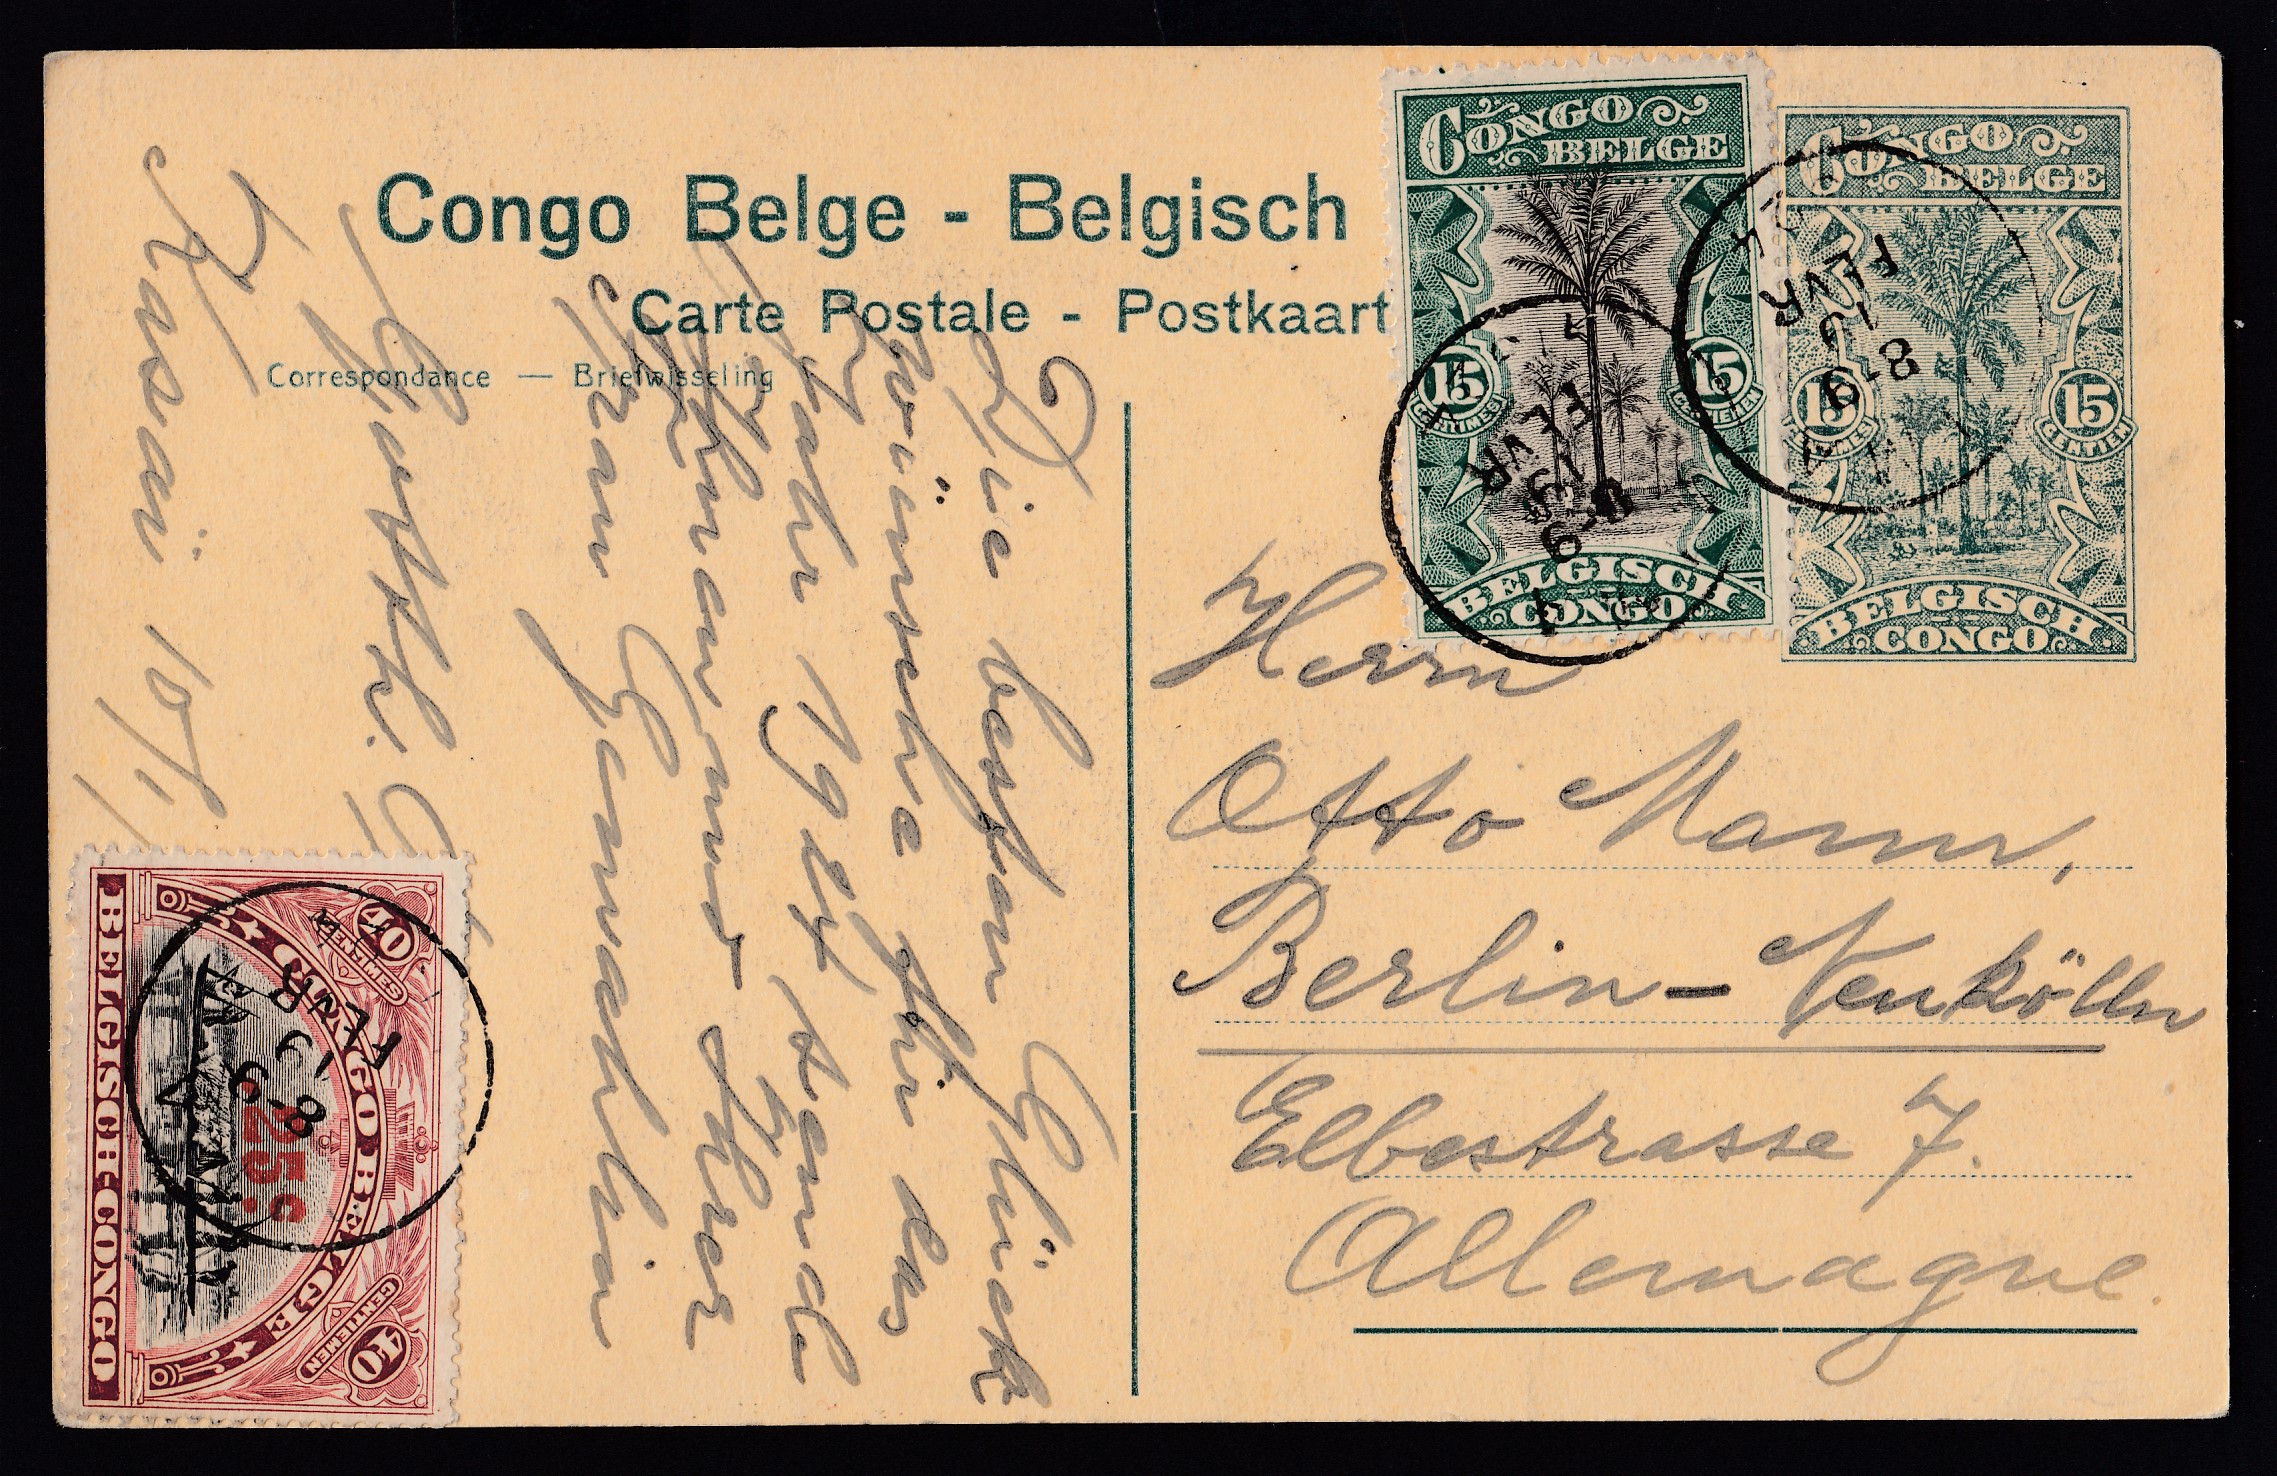 Congo Belge - Belgisch
Carte Postale - Postkaart
Correspondance — Briefwisseling
CONGO BELGE
15 CENTIMES
15 CENTIEMEN
BELGISCH CONGO
CONGO BELGE
15 CENTIMES
15 CENTIEMEN
BELGISCH CONGO
8-9
FEVR
8-9
FEVR
Herrn
Otto Mann,
Berlin-Neukölln
Elbestrasse 7.
Allemagne.
Die besten Glück
wünsche für das
Jahr 1924 sende
Ihnen und Ihrer
Frau Gemahlin
Gottfr.
Kasai 10/1
CONGO BELGE
40 CENTIMES
40 CENTIEMEN
BELGISCH-CONGO
25c
8-9
FEVR